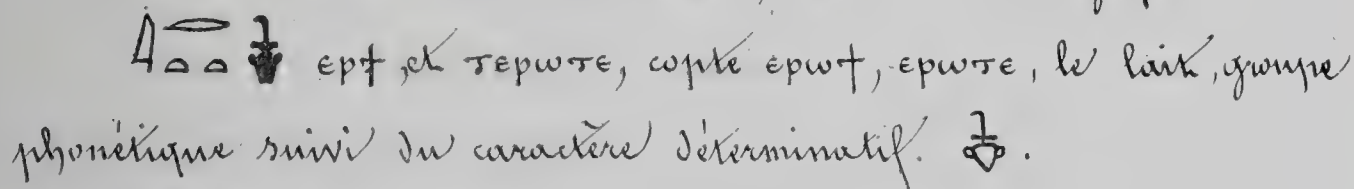 𓇋𓂋𓏏𓏏 ⲉⲣϯ, et ⲧⲉⲣⲱⲧⲉ, copte ⲉⲣⲱϯ, ⲉⲣⲱⲧⲉ, le lait, groupe
phonétique suivi du caractère déterminatif.